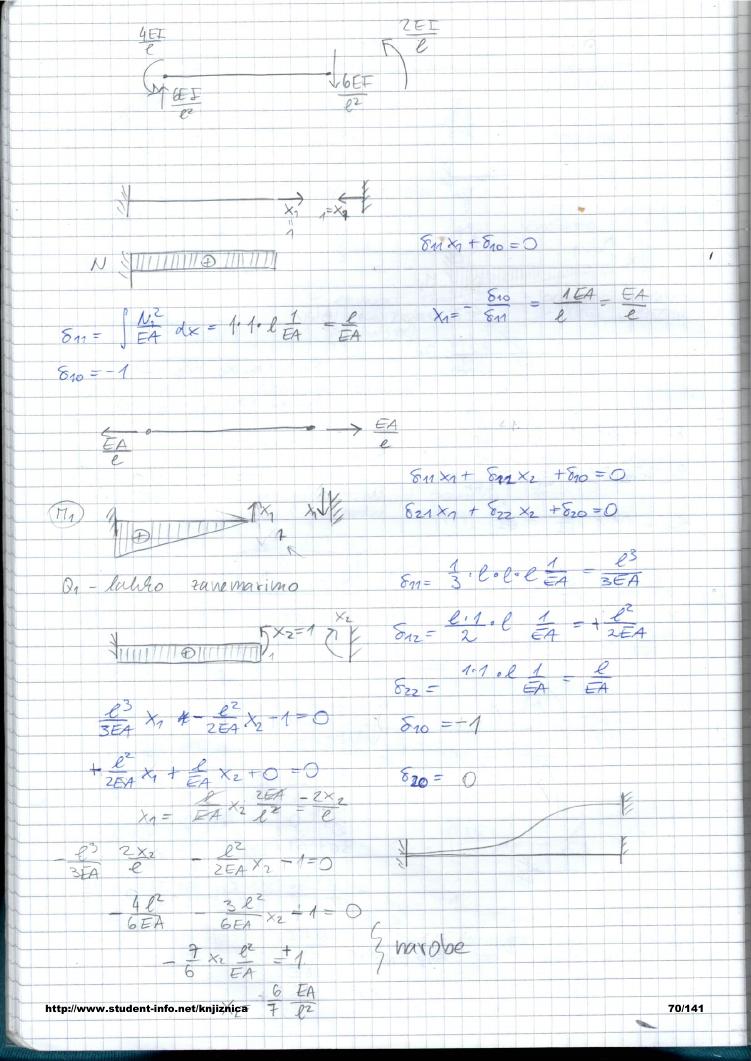 4EI/l
2EI/l
6EI/l²
6EI/l²
x₁ = 1
1 = x₁
N
δ₁₁x₁ + δ₁₀ = 0
δ₁₁ = ∫ N₁²/EA dx = 1·1·l 1/EA = l/EA
x₁ = - δ₁₀/δ₁₁ = 1EA/l = EA/l
δ₁₀ = -1
EA/l
EA/l
δ₁₁x₁ + δ₁₂x₂ + δ₁₀ = 0
M₁
x₁
x₁
1
δ₂₁x₁ + δ₂₂x₂ + δ₂₀ = 0
Q₁ - lahko zanemarimo
δ₁₁ = 1/3 · l·l·l 1/EA = l³/3EA
x₂ = 1
x₂
δ₁₂ = l·1/2 · l 1/EA = + l²/2EA
δ₂₂ = 1·1·l 1/EA = l/EA
l³/3EA x₁ - l²/2EA x₂ - 1 = 0
δ₁₀ = -1
+ l²/2EA x₁ + l/EA x₂ + 0 = 0
δ₂₀ = 0
x₁ = l/EA x₂ 2EA/l² = -2x₂/l
- l³/3EA 2x₂/l - l²/2EA x₂ - 1 = 0
- 4l²/6EA - 3l²/6EA x₂ - 1 = 0
- 7/6 x₂ l²/EA = +1
narobe
6/7 EA/l²
http://www.student-info.net/knjiznica
70/141